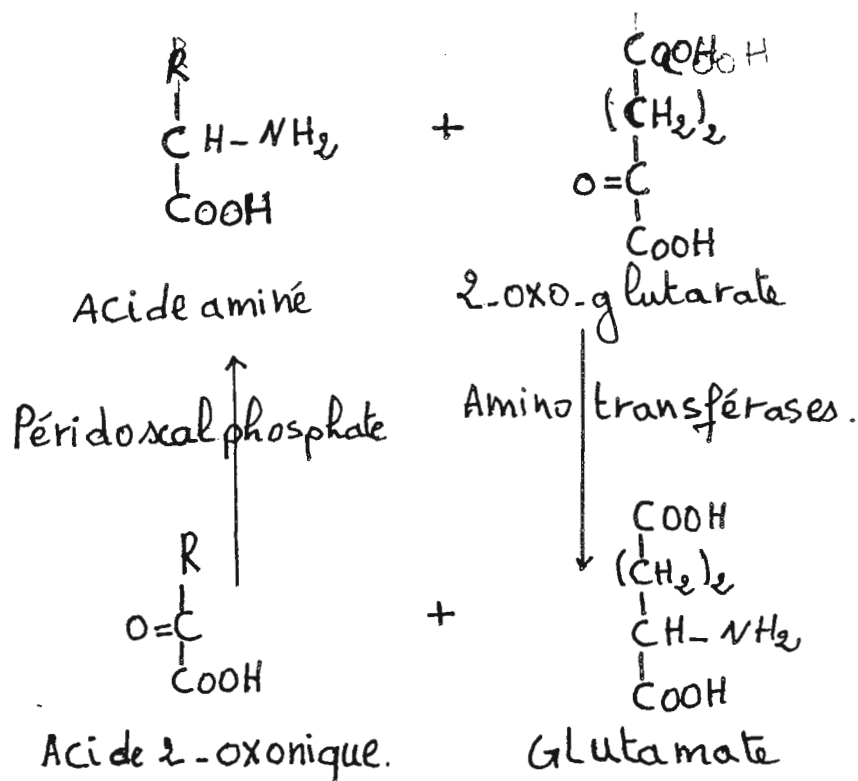 R COOH
CH-NH2 + (CH2)2
COOH O=C
COOH
Acide aminé 2-oxo-glutarate
Péridoxal phosphate Amino transférases.
COOH
R (CH2)2
O=C + CH-NH2
COOH COOH
Acide 2-oxonique. Glutamate